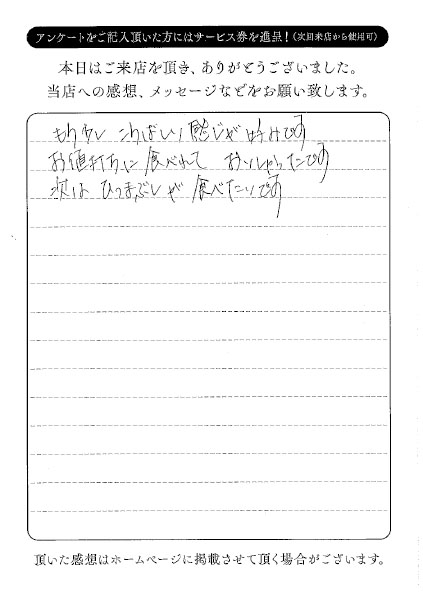 アンケートをご記入頂いた方にはサービス券を進呈!(次回来店から使用可)
本日はご来店を頂き、ありがとうございました。
当店への感想、メッセージなどをお願い致します。
もう少し こうばしい感じが好みです
お値打ちに食べれて おいしかったです
次は ひつまぶしが 食べたいです
頂いた感想はホームページに掲載させて頂く場合がございます。